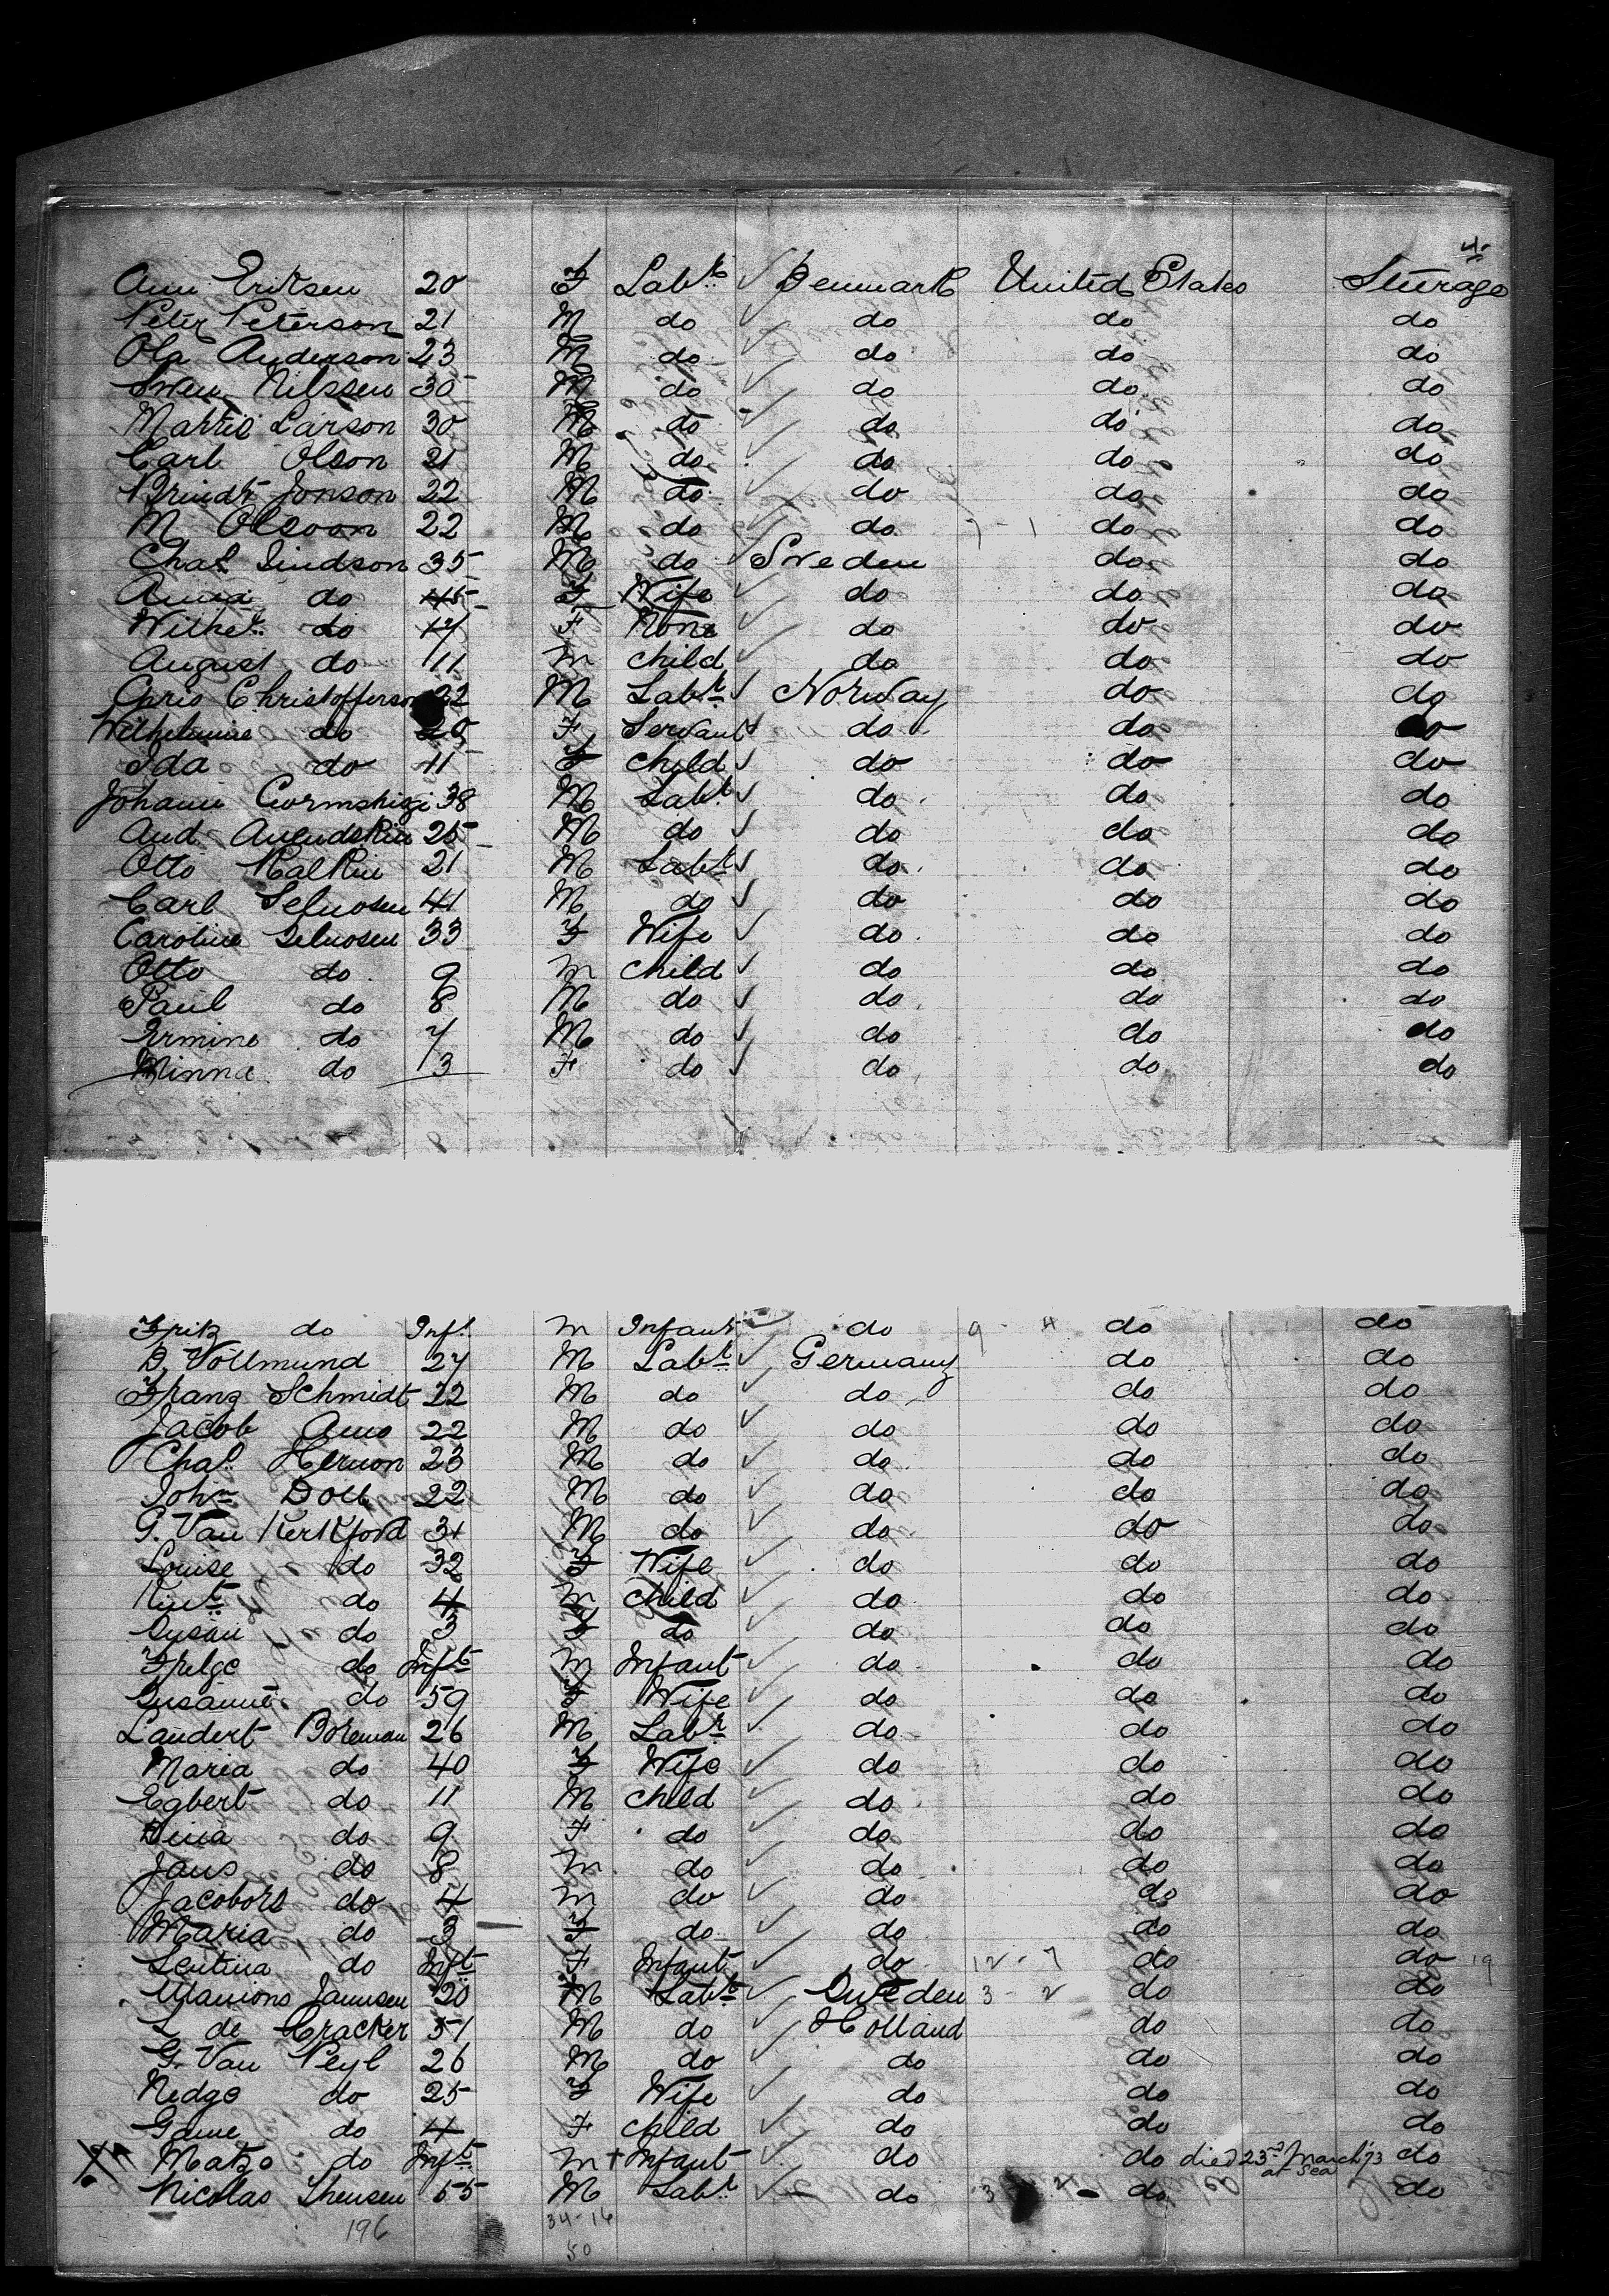 4.
Ann Eriksen 20 F Labr Denmark United States Steerage
Peter Peterson 21 M do do do do
Ola Anderson 23 M do do do do
Swen Nilssen 30 M do do do do
Larson 30 M do do do do
Carl Olson 21 M do do do do
Jonson 22 M do do do do
M Olsoon 22 M do do do do
Chas Lindson 35 M do Sweden do do
Anna do 45 F Wife do do do
do 17 F None do do do
August do 11 m child do do do
Christofferson 22 M Labr Norway do do
Wilhelmine do 20 F Servant do do do
Ida do 11 F child do do do
Johann 38 M Labr do do do
And 25 M do do do do
Otto Kalkin 21 M Labr do do do
Carl 41 M do do do do
Caroline 33 F Wife do do do
Otto do 9 m child do do do
Paul do 8 M do do do do
Ermine do 7 M do do do do
Minna do 3 F do do do do
Fritz do Inft m Infant do 9 - 4 do do
D. Vollmund 27 M Labr Germany do do
Franz Schmidt 22 M do do do do
Jacob 22 M do do do do
Chas Hernon 23 M do do do do
John Doll 22 M do do do do
G. Van Kerkford 31 M do do do do
Louise do 32 F Wife do do do
do 4 m child do do do
Susan do 3 F do do do do
do Inft m Infant do do do
Susanne do 59 F Wife do do do
Landert Boreman 26 M Labr do do do
Maria do 40 F Wife do do do
Egbert do 11 M child do do do
Dina do 9 F do do do do
Jans do 8 m do do do do
Jacobors do 4 m do do do do
Maria do 3 F do do do do
Sentina do Inft F Infant do 12 - 7 do do 19
Jannsen 20 M Labr Sweden 3 - 2 do do
L de Cracker 51 M do Holland do do
G. Van Peyl 26 M do do do do
Nedge do 25 F Wife do do do
do 4 F child do do do
Matzo do Inft m + Infant do do died 23rd March '93 at sea do
Nicolas 55 M Labr do 3 2 do do
196 34-16
50